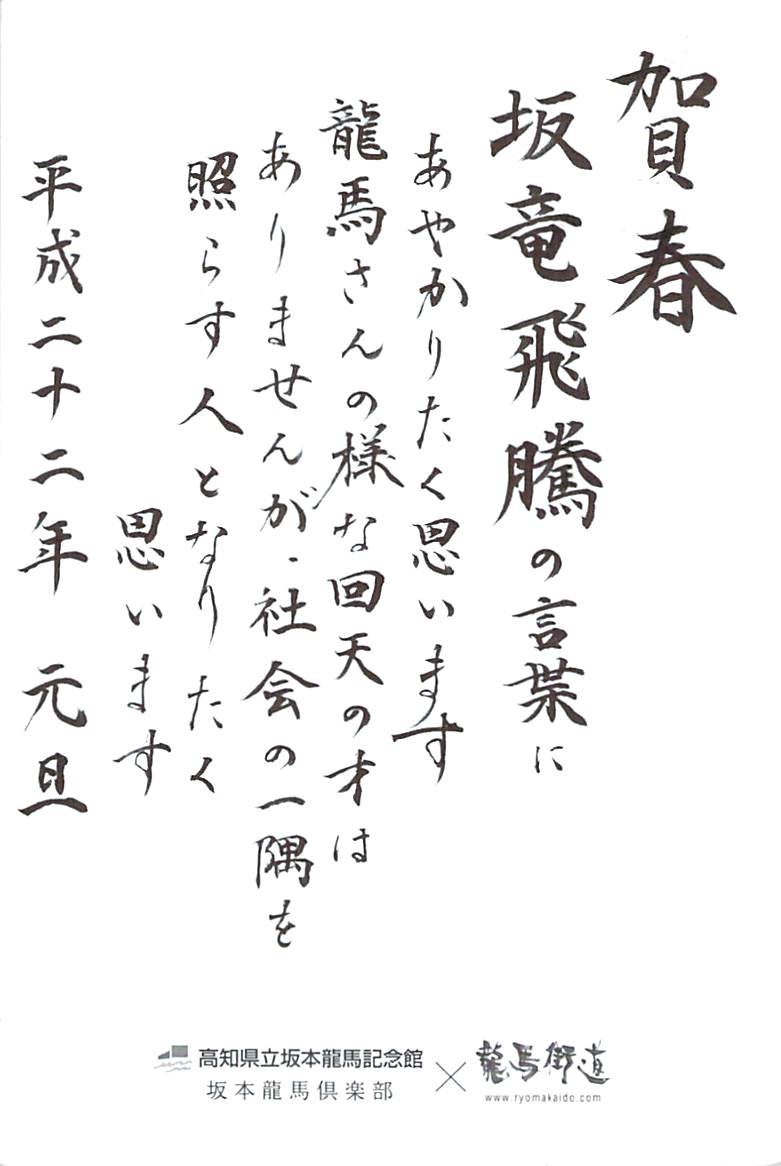 賀春
坂竜飛騰の言葉に
あやかりたく思います
龍馬さんの様な回天の才は
ありませんが、社会の一隅を
照らす人となりたく
思います
平成二十二年 元旦
高知県立坂本龍馬記念館
坂本龍馬倶楽部
×
龍馬街道
www.ryomakaido.com